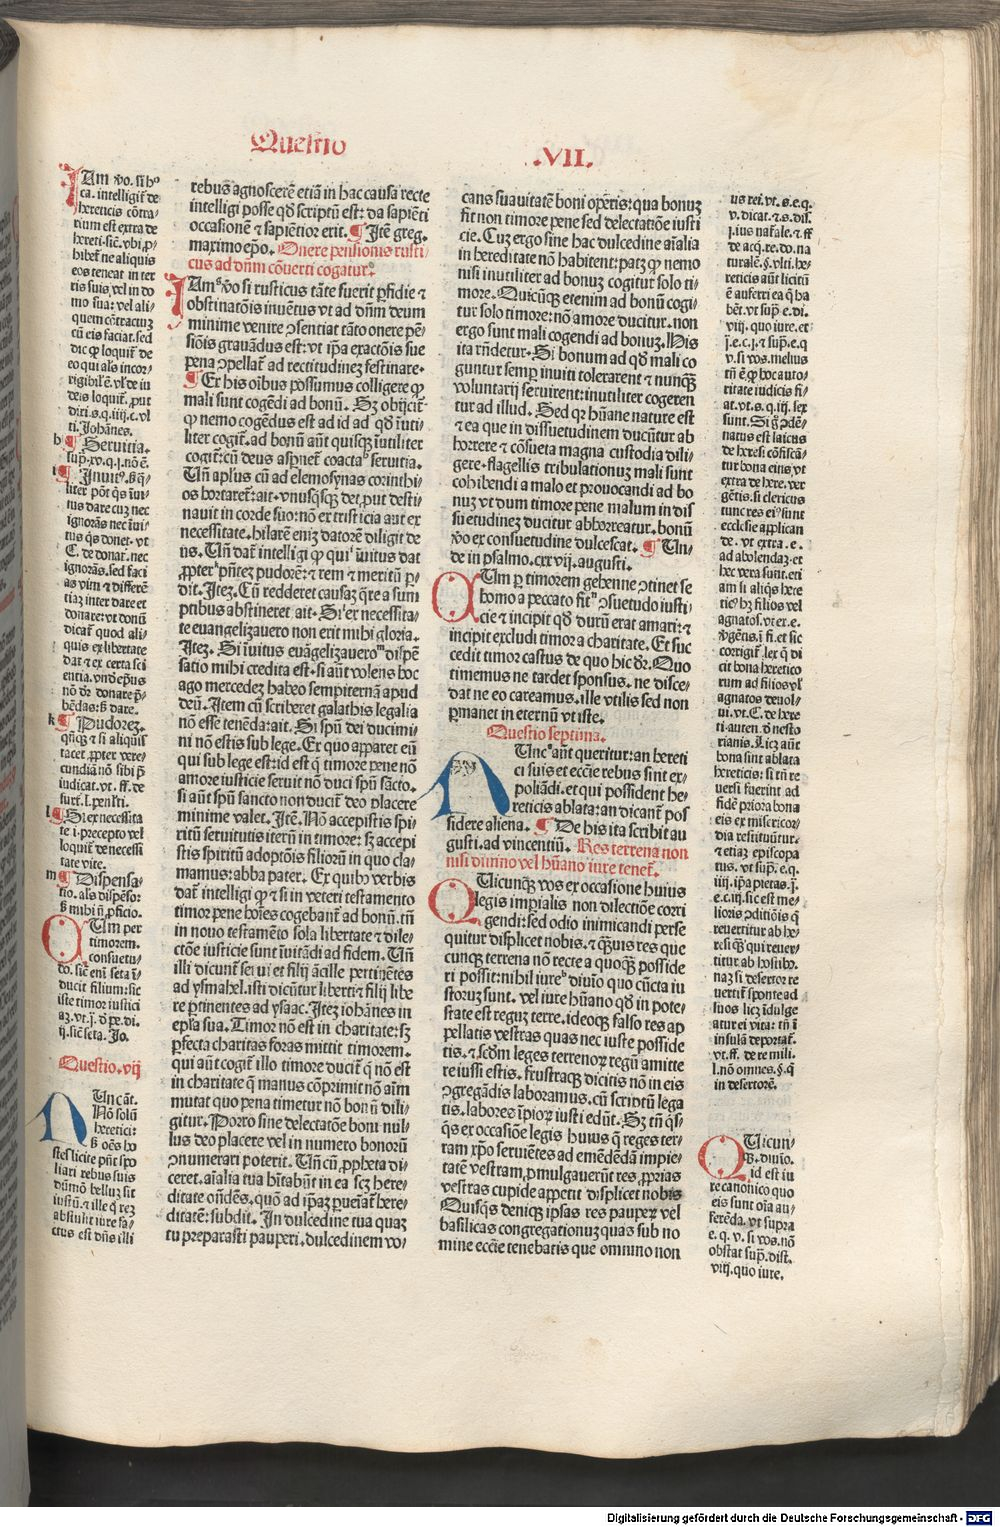 Questio .VII.
Iam v̊o. si hͦ
ca. intelligit̉ de
herencis cōtra-
rium est extra de
hereti. sic̄. vbi ꝓ-
hibet̉ ne aliquis
eos teneat in ter
ris suis vel in do
mo sua: vel ali-
quem cōtractuꝫ
cū eis faciat. sed
dic ꝙ loquit̉ de
eo qui als̄ incor-
rigibil̓ ē. vl̓ de iu
deis loquit̉. put
ti. Johānes.
h ¶ Seruitia.
sup̄. xv. q. j. nō ē.
liter pōt q̄s īui-
tus dare cuꝫ nec
ignorās nec īui-
tus q̄s donet. vt
C. de donat̉. nec
ignorās. sed faci
as vim ⁊ differē
tiaꝫ inter dare et
donare: vt donū
dicat̉ quod ali-
quis ex libertate
dat ⁊ ex certa sci
entia. vnd̓ ep̄us
nō dr̄ donare p̄-
bēdas: s̄ dare.
k ¶ Pudoreꝫ.
q̄nq̄ꝫ ⁊ si aliquis
tacet ꝓpter vere-
cundiā nō sibi p̄
iudicat. vt. ff. de
surt̓. l. penl̓ti.
l ¶ Si ex necessita
te i. precepto vel
loquit̉ de necessi
tate vite.
m ¶ Dispensa-
tio. als̄ dispēso:
s̄ mihi ñ ꝓficio.
QUm per
timorem.
consuetu-
do. sic̄ eni̅ seta ī-
ducit filium: sic
iste timor iustici
aꝫ. vt. j. d̓ pe. di.
ij. sic seta. Jo.
Questio. vij
NUn cāt.
Nō solū
heretici:
s̄ oēs ho
stes licite pn̄t spo
liari rebus suis
dūmō belluꝫ sit
iustū. ⁊ ille q̄ reꝫ
abstulit iure fa-
ctus est dn̄s illi
rebus agnoscerē etiā in hac causa recte
intelligi posse qd̓ scriptū est: da sapiēti
occasionē ⁊ sapiētior erit. ¶ Itē greg.
maximo ep̄o. Onere pensionis rusti-
cus ad dn̄m cōuerti cogatur.
IAm v̊o si rusticus tāte fuerit ꝑfidie ⁊
obstinatōis inuētus vt ad dn̄m deum
minime venire ꝯsentiat tāto onere pē-
siōis grauādus est: vt ip̄a exactōis sue
pena ꝯpellat̉ ad rectitudineꝫ festinare.
¶ Ex his oībus possumus colligere ꝙ
mali sunt cogēdi ad bonū. Sꝫ obijcit̉
ꝙ nemo cogēdus est ad id ad qd̓ īuti-
liter cogit̉. ad bonū aūt quisqꝫ īutiliter
cogit̉: cū deus aspnet̉ coacta seruitia.
Un̄ apl̄us cū ad elemosynas corinthi-
os hortaret̉: ait. vnusq̄sqꝫ det ꝓut desti-
nauit in corde suo: nō ex tristicia aut ex
necessitate. hilarē enīꝫ datorē diligit de
us. Un̄ dat̉ intelligi ꝙ qui īuitus dat
ꝓpter pn̄teꝫ pudorē: ⁊ rem ⁊ meritū ꝑ-
dit. Iteꝫ. Cū redderet causaꝫ q̄re a sum
ptibus abstineret ait. Si ex necessita-
te euangelizauero non erit mihi gloria.
Iteꝫ. Si īuitus euāgelizauero dispē
satio mihi credita est. si aūt volens hoc
ago mercedeꝫ habeo sempiternā apud
deū. Item cū scriberet galathis legalia
nō esse tenēda: ait. Si spū dei ducimi-
ni nō estis sub lege. Ex quo apparet eū
qui sub lege est: id est q̄ timore pene nō
amore iusticie seruit nō duci spū sācto.
si aūt spū sancto non ducit̉ deo placere
minime valet. Itē. Nō accepistis spi-
ritū seruitutis iterū in timore: sꝫ accepi
stis spiritū adoptōis filiorū in quo cla-
mamus: abba pater. Ex quibꝰ verbis
dat̉ intelligi ꝙ ⁊ si in veteri testamento
timor pene hoīes cogebant̉ ad bonū. tn̄
in nouo testamēto sola libertate ⁊ dile-
ctōe iusticie sunt īuitādi ad fidem. Un̄
illi dicunt̉ serui et filij ācille pertinētes
ad ysmahel. isti dicūtur liberi ⁊ filij libe
re ꝑtinentes ad ysaac. Iteꝫ iohānes in
ep̄la sua. Timor nō est in charitate: sꝫ
ꝑfecta charitas foras mittit timorem.
qui aūt cogit̉ illo timore ducit̉ q̄ nō est
in charitate q̄ manus cōprimit nō aīm
mutat quo pena timetur nō bonū dili-
gitur. Porro sine delectatōe boni nul-
lus deo placere vel in numero bonorū
ꝯnumerari poterit. Un̄ cū ꝓpheta di-
ceret. aīalia tua hītabūt in ea scꝫ here-
ditate on̄dēs. quō ad ip̄aꝫ pueāt̉ here-
ditatē: subdit. In dulcedine tua quaꝫ
tu preparasti pauperi. dulcedinem vo-
cans suauitatē boni operis: qua bonuꝫ
fit non timore pene sed delectatiōe iusti
cie. Cuꝫ ergo sine hac dulcedine aīalia
in hereditate nō habitent: patꝫ ꝙ nemo
nisi inutiliter ad bonuꝫ cogitur solo ti-
more. Quicūqꝫ etenim ad bonū cogi-
tur solo timore: nō amore ducitur. non
ergo sunt mali cogendi ad bonuꝫ. His
ita rn̄detur. Si bonum ad qd̓ mali co
guntur semꝑ inuiti tolerarent ⁊ nunqꝫ̄
voluntarij seruirent: inutiliter cogeren
tur ad illud. Sed qꝛ hūane nature est
⁊ ea que in dissuetudinem ducūtur ab
horrere ⁊ cōsueta magna custodia dili-
gere. flagellis tribulationuꝫ mali sunt
cohibendi a malo et prouocandi ad bo
nuꝫ vt dum timore pene malum in dis
suetudineꝫ ducitur abhorreatur. bonū
v̊o ex consuetudine dulcescat. ¶ Un-
de in psalmo. cxxvij. augusti.
QUm ꝑ timorem gehenne ꝯtinet se
homo a peccato fit ꝯsuetudo iusti-
cie ⁊ incipit qd̓ durū erat amari: ⁊
incipit excludi timor a charitate. Et suc
cedit timor castus de quo hic dr̄. Quo
timemus ne tardet sponsus. ne disce-
dat ne eo careamus. ille vtilis sed non
ꝑmanet in eternū vt iste.
Questio septima.
NUnc aūt queritur: an hereti
ci suis et ecc̄ie rebus sint ex-
poliādi. et qui possident he-
reticis ablata: an dicant̉ pos
sidere aliena. ¶ De his ita scribit au
gusti. ad vincentiū. Res terrena non
nisi diuino vel hūano iure tenet̉.
QUicunqꝫ vos ex occasione huius
legis imꝑialis non dilectiōe corri
gendi: sed odio inimicandi perse
quitur displicet nobis. ⁊ q̄uis res que
cunqꝫ terrena nō recte a quoqꝫ̄ posside
ri possit: nisi vel iure diuīo quo cūcta iu
storuꝫ sunt. vel iure hūano qd̓ in pote-
state est reguꝫ terre. ideoqꝫ falso res ap
pellatis vestras quas nec iuste posside
tis. ⁊ scd̓m leges terrenoꝝ regū amitte
re iussi estis. frustraqꝫ dicitis nō in eis
ꝯgregādis laboramus. cū scriptū lega
tis. labores īpioꝝ iusti edūt. Sꝫ tn̄ qs̄-
q̄s ex occasiōe legis huius q̄ reges ter-
ram xp̄o seruiētes ad emēdēdā impie-
tatē vestram ꝓmulgauerūt res ꝓprias
vestras cupide appetit displicet nobis
Quisq̄s deniqꝫ ipsas res pauperꝝ vel
basilicas congregationuꝫ quas sub no
mine ecc̄ie tenebatis que omnino non
us rei. vt. s. e. q.
v. dicat. ⁊. s. dis.
j. ius natale. ⁊. ff
de acq. re. do. na
turalē. §. vlti. he-
reticis aūt licitū
ē auferri ea q̄ ha
bēt. vt sup̄. e. di.
viij. quo iure. et
j. e. c. j. ⁊ sup̄. e. q
v. si vos. melius
tn̄ ē ꝙ hoc auto-
ritate iudicis fi-
at. vt. s. q. iij. sex
sunt. Si g̊ ꝯdē-
natus est laicus
de heresi cōfisca-
tur bona eius vt
extra de here. ver
gētis. si clericus
tunc res ei sunt
ecclesie applican
de. vt extra. e.
ad abolendaꝫ. et
hec vera sunt. eti
am si aliqs here
ticꝰ hꝫ filios vel
agnatos. vt ex. e.
vḡētis. in fi. et sic
corrigit̉. lex q̄ di
cit bona hereticо
rum ad filios vl̓
agnatos deuol-
ui. vt. C. de here
ti. auten. d̓ nesto
rianis. §. icꝫ aūt
bona sint ablata
hereticis: si tn̄ re
uersi fuerint ad
fidē priora bona
eis ex misericor-
dia restituūtur.
⁊ etiaꝫ episcopa
tus. vt sup̄. e. q.
iiij. ip̄a pietas. j.
e. c. iij. sic est me-
lioris ꝯditiōis q̄
reuertitur ab he-
resi q̄ꝫ qui reuer-
titur ab hostibꝰ.
naꝫ si desertor re
uertit̉ sponte ad
suos licꝫ īdulge
atur ei vita: tn̄ ī
insulā deportat̉.
vt. ff. de re mili.
l. nō omnes. §. q̄
in desertorē.
QUicun-
qꝫ. diuīo.
id est iu
re canonico quo
eis sunt oīa au-
ferēda. vt supra
e. q. v. si vos. nō
obstat sup̄. dist.
viij. quo iure.
Digitalisierung gefördert durch die Deutsche Forschungsgemeinschaft - DFG